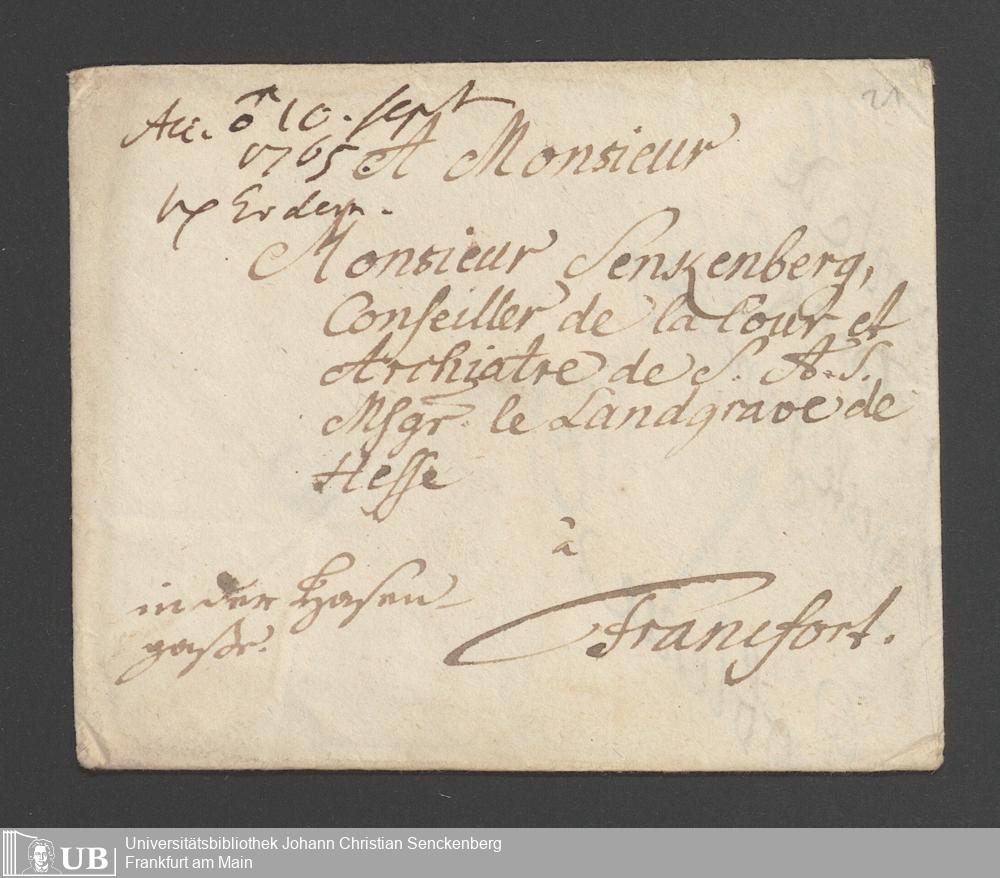 Acc. ♂ 10. sept
1765
A Monsieur
Erdem.
Monsieur Senkenberg,
Conseiller de la Cour et
Archiatre de S. A. S.
Msgr. le Landgrave de
Hesse
à
Francfort.
in der Hasen-
gaße.
21
UB
Universitätsbibliothek Johann Christian Senckenberg
Frankfurt am Main